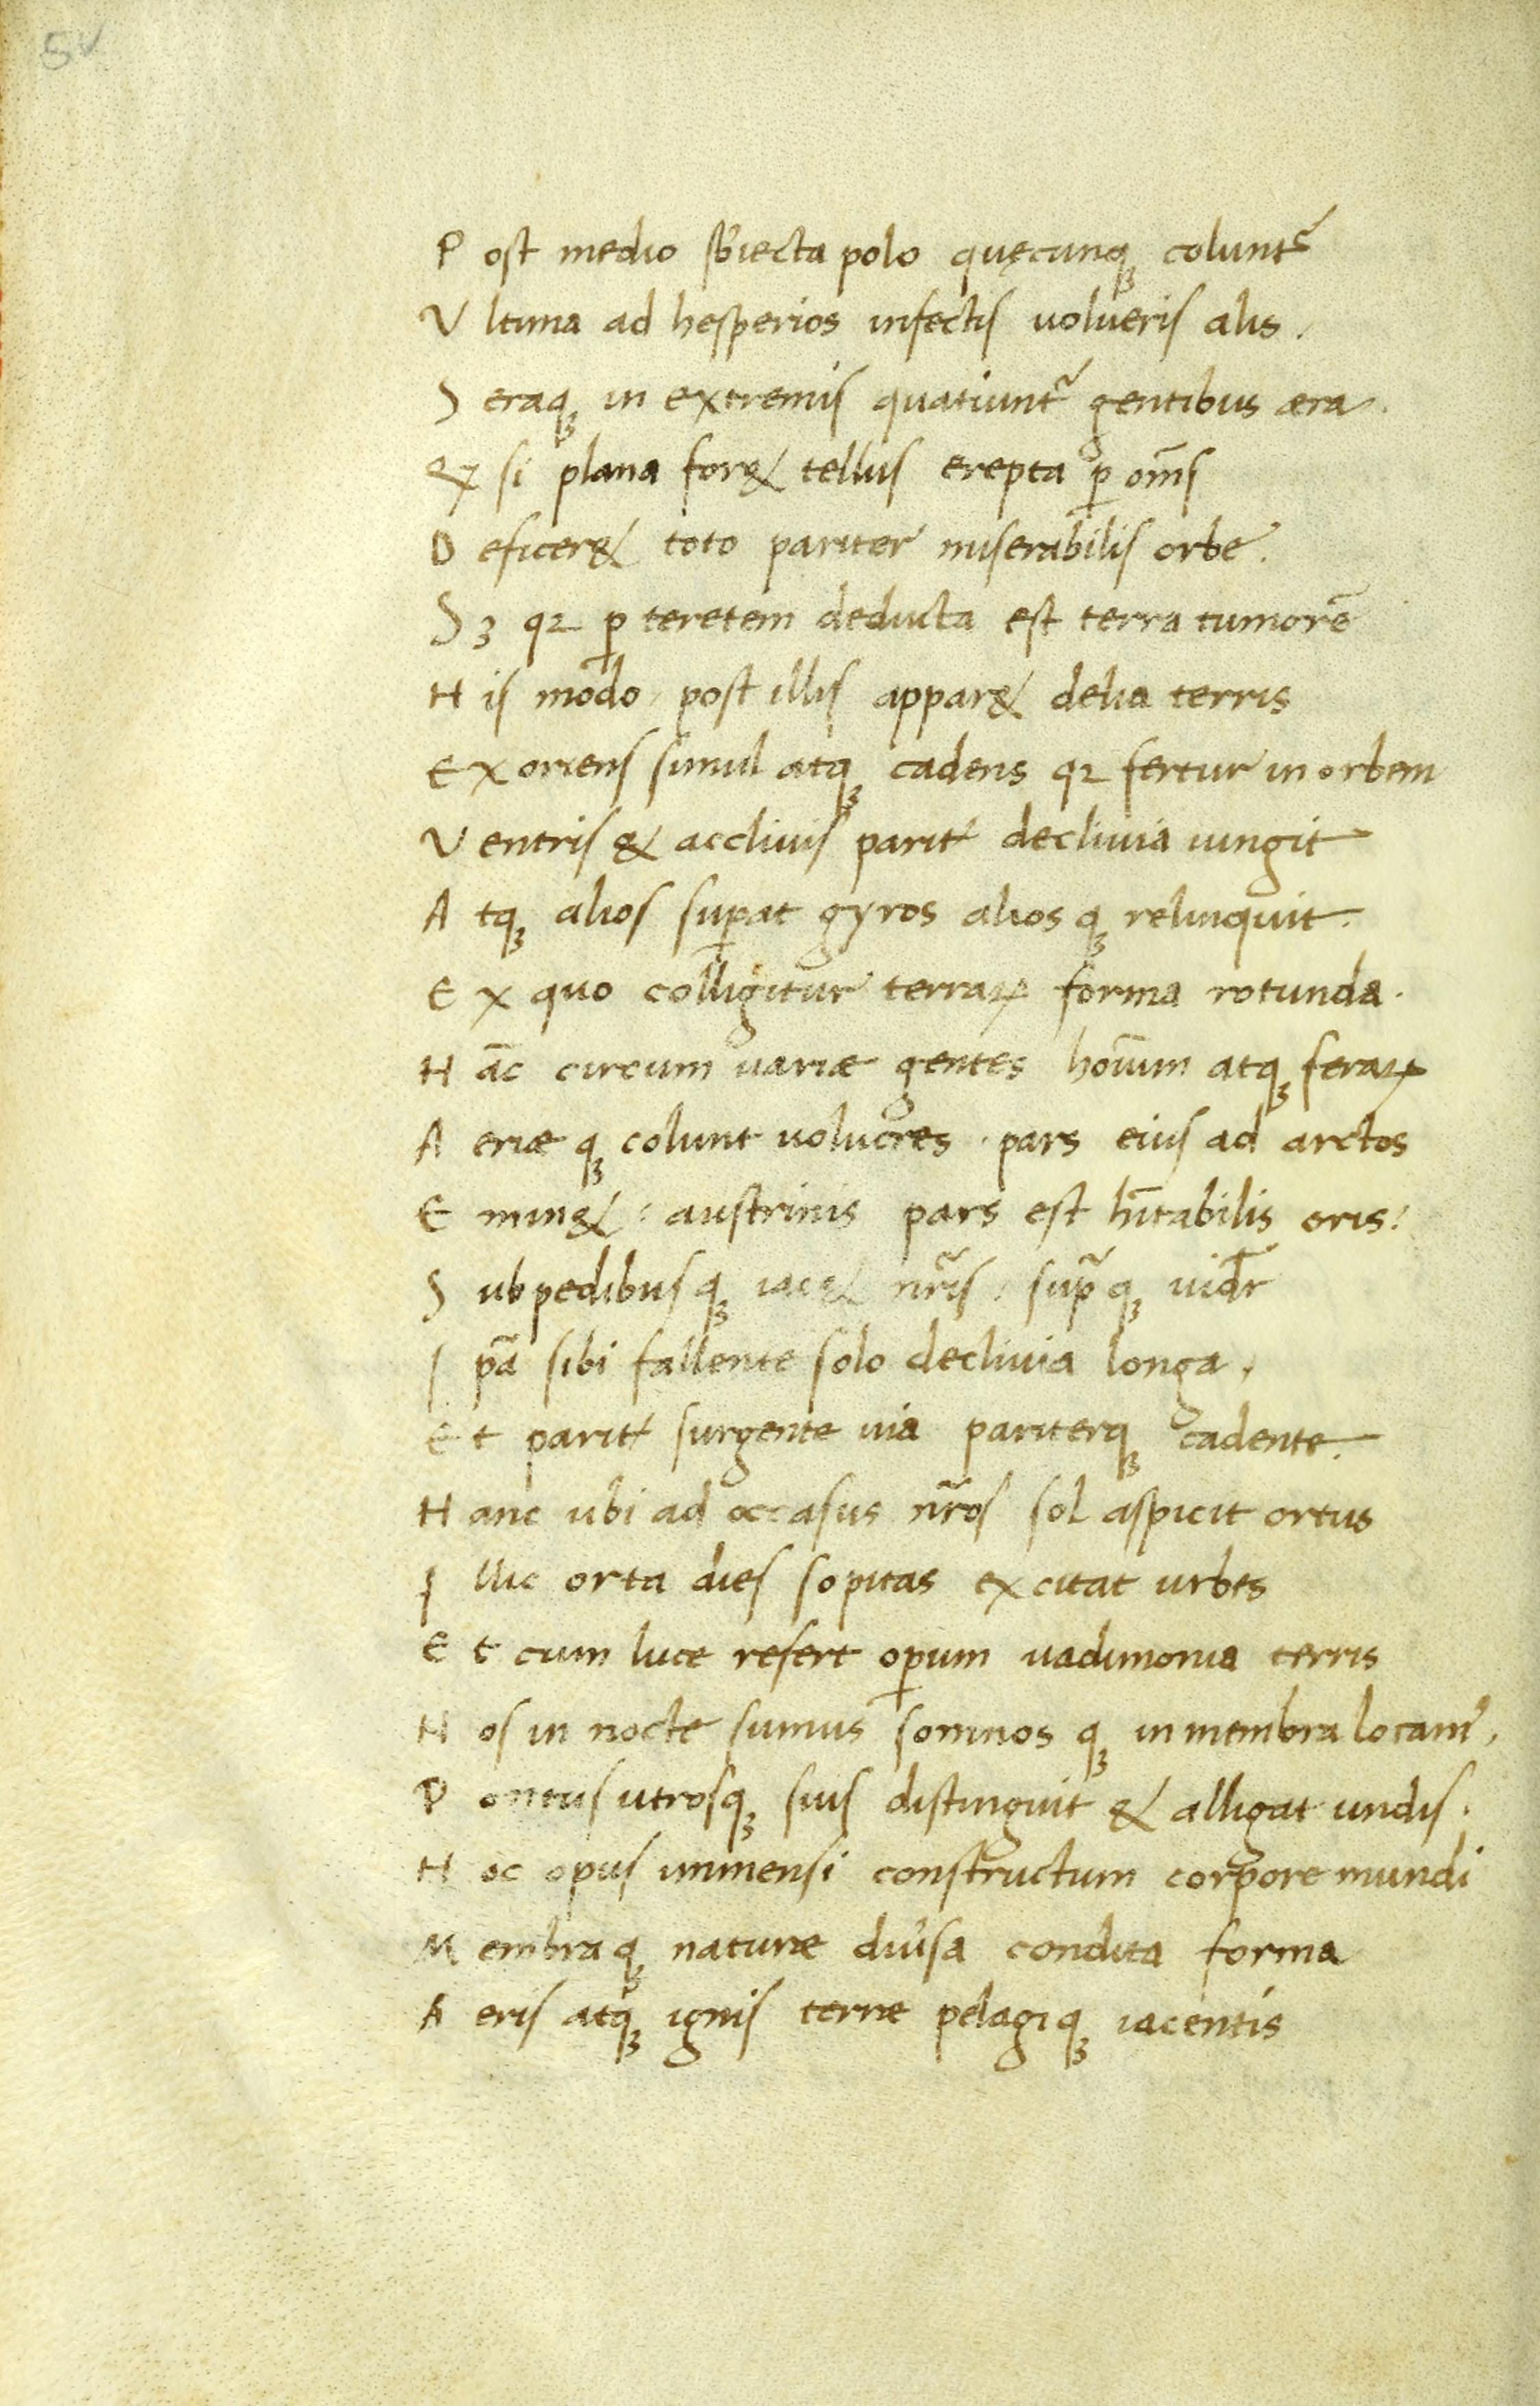 5v
P ost medio sb̕iecta polo quęcunqꝫ coluntᷣ
V ltima ad hesperios infectis uolueris alis.
S eraqꝫ in extremis quatiuntᷣ gentibus æra.
Q̨ si plana for& tellus erepta ꝑ om̄s
D eficer& toto pariter miserabilis orbe.
S ꝫ q2 ꝑ teretem deducta est terra tumorē
H is mōdo, post illis appar& delia terris
E xoriens simul atqꝫ cadens q2 fertur in orbem
V entris & accliuis parit̕ decliuia iungit
A tqꝫ alios suꝑat gyros aliosqꝫ relinquit.
E x quo colligitur terraꝝ forma rotunda.
H āc circum uariæ gentes hoīum atqꝫ feraꝝ
A eriæqꝫ colunt uolucres. pars eius ad arctos
E min&: austrinis pars est hītabilis oris:
S ub pedibusqꝫ iac& nr̃is, sup̃qꝫ uidr̄
I pā sibi fallente solo decliuia longa,
E t parit̕ surgente uia pariterqꝫ cadente.
H anc ubi ad occasus nr̃os sol aspicit ortus
I llic orta dies sopitas excitat urbes
E t cum luce refert oꝑum uadimonia terris
N os in nocte sumus somnosqꝫ in membra locam᾿,
P ontus utrosqꝫ suis distinguit & alligat undis.
H oc opus immensi constructum corpore mundi
M embraqꝫ naturæ diu̕sa condita forma
A eris atqꝫ ignis terræ pelagiqꝫ iacentis